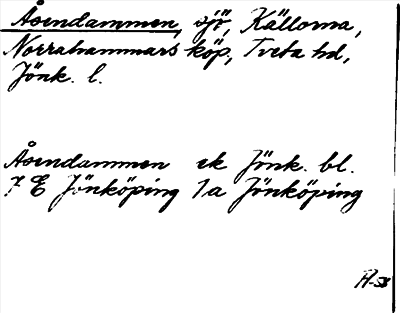 Åsendammen, sjö, Källorna,
Norrahammars köp, Tveta hd,
Jönk. l.
Åsendammen ek Jönk. bl.
7 E Jönköping 1a Jönköping